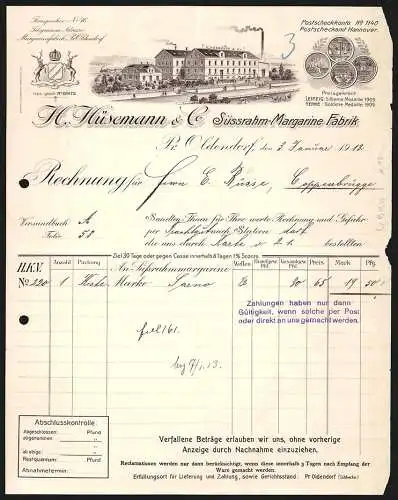 Fernsprecher No 16
Telegramm-Adresse:
Margarinefabrik Pr. Oldendorf
Postscheckkonto No 1140
Postscheckamt Hannover.
3
Preisgekrönt
LEIPZIG: Silberne Medaille 1905
HERNE: Goldene Medaille 1905
H. Hüsemann & Co Süssrahm-Margarine-Fabrik
Pr. Oldendorf, den 3. Januar 1913.
Rechnung für Herrn E. Busse, Coppenbrügge
Versandbuch A
Folio 58
Sandten Ihnen für Ihre werte Rechnung und Gefahr
per Station
die uns durch Karte v. 2 ts. bestellten
Ziel 30 Tage oder gegen Casse innerhalb 8 Tagen 1% Sconto.
H.K.V. Anzahl Packung An Süssrahmmargarine Wellen Pfd. Pfd. Preis Mark Pfg.
No 220 1 Kiste Marke E 30 65 19 50
Zahlungen haben nur dann
Gültigkeit, wenn solche per Post
oder direkt an uns gemacht werden.
7/1.13.
Abschlusskontrolle
Abgeschlossen: Pfund
abgenommen: "
ab obige: "
Restquantum: Pfund
Abnahmetermin:
Verfallene Beträge erlauben wir uns, ohne vorherige
Anzeige durch Nachnahme einzuziehen.
Reclamationen werden nur dann berücksichtigt, wenn diese innerhalb 3 Tagen nach Empfang der
Ware gemacht werden.
Erfüllungsort für Lieferung und Zahlung, sowie Gerichtsstand: Pr Oldendorf (Lübbecke)